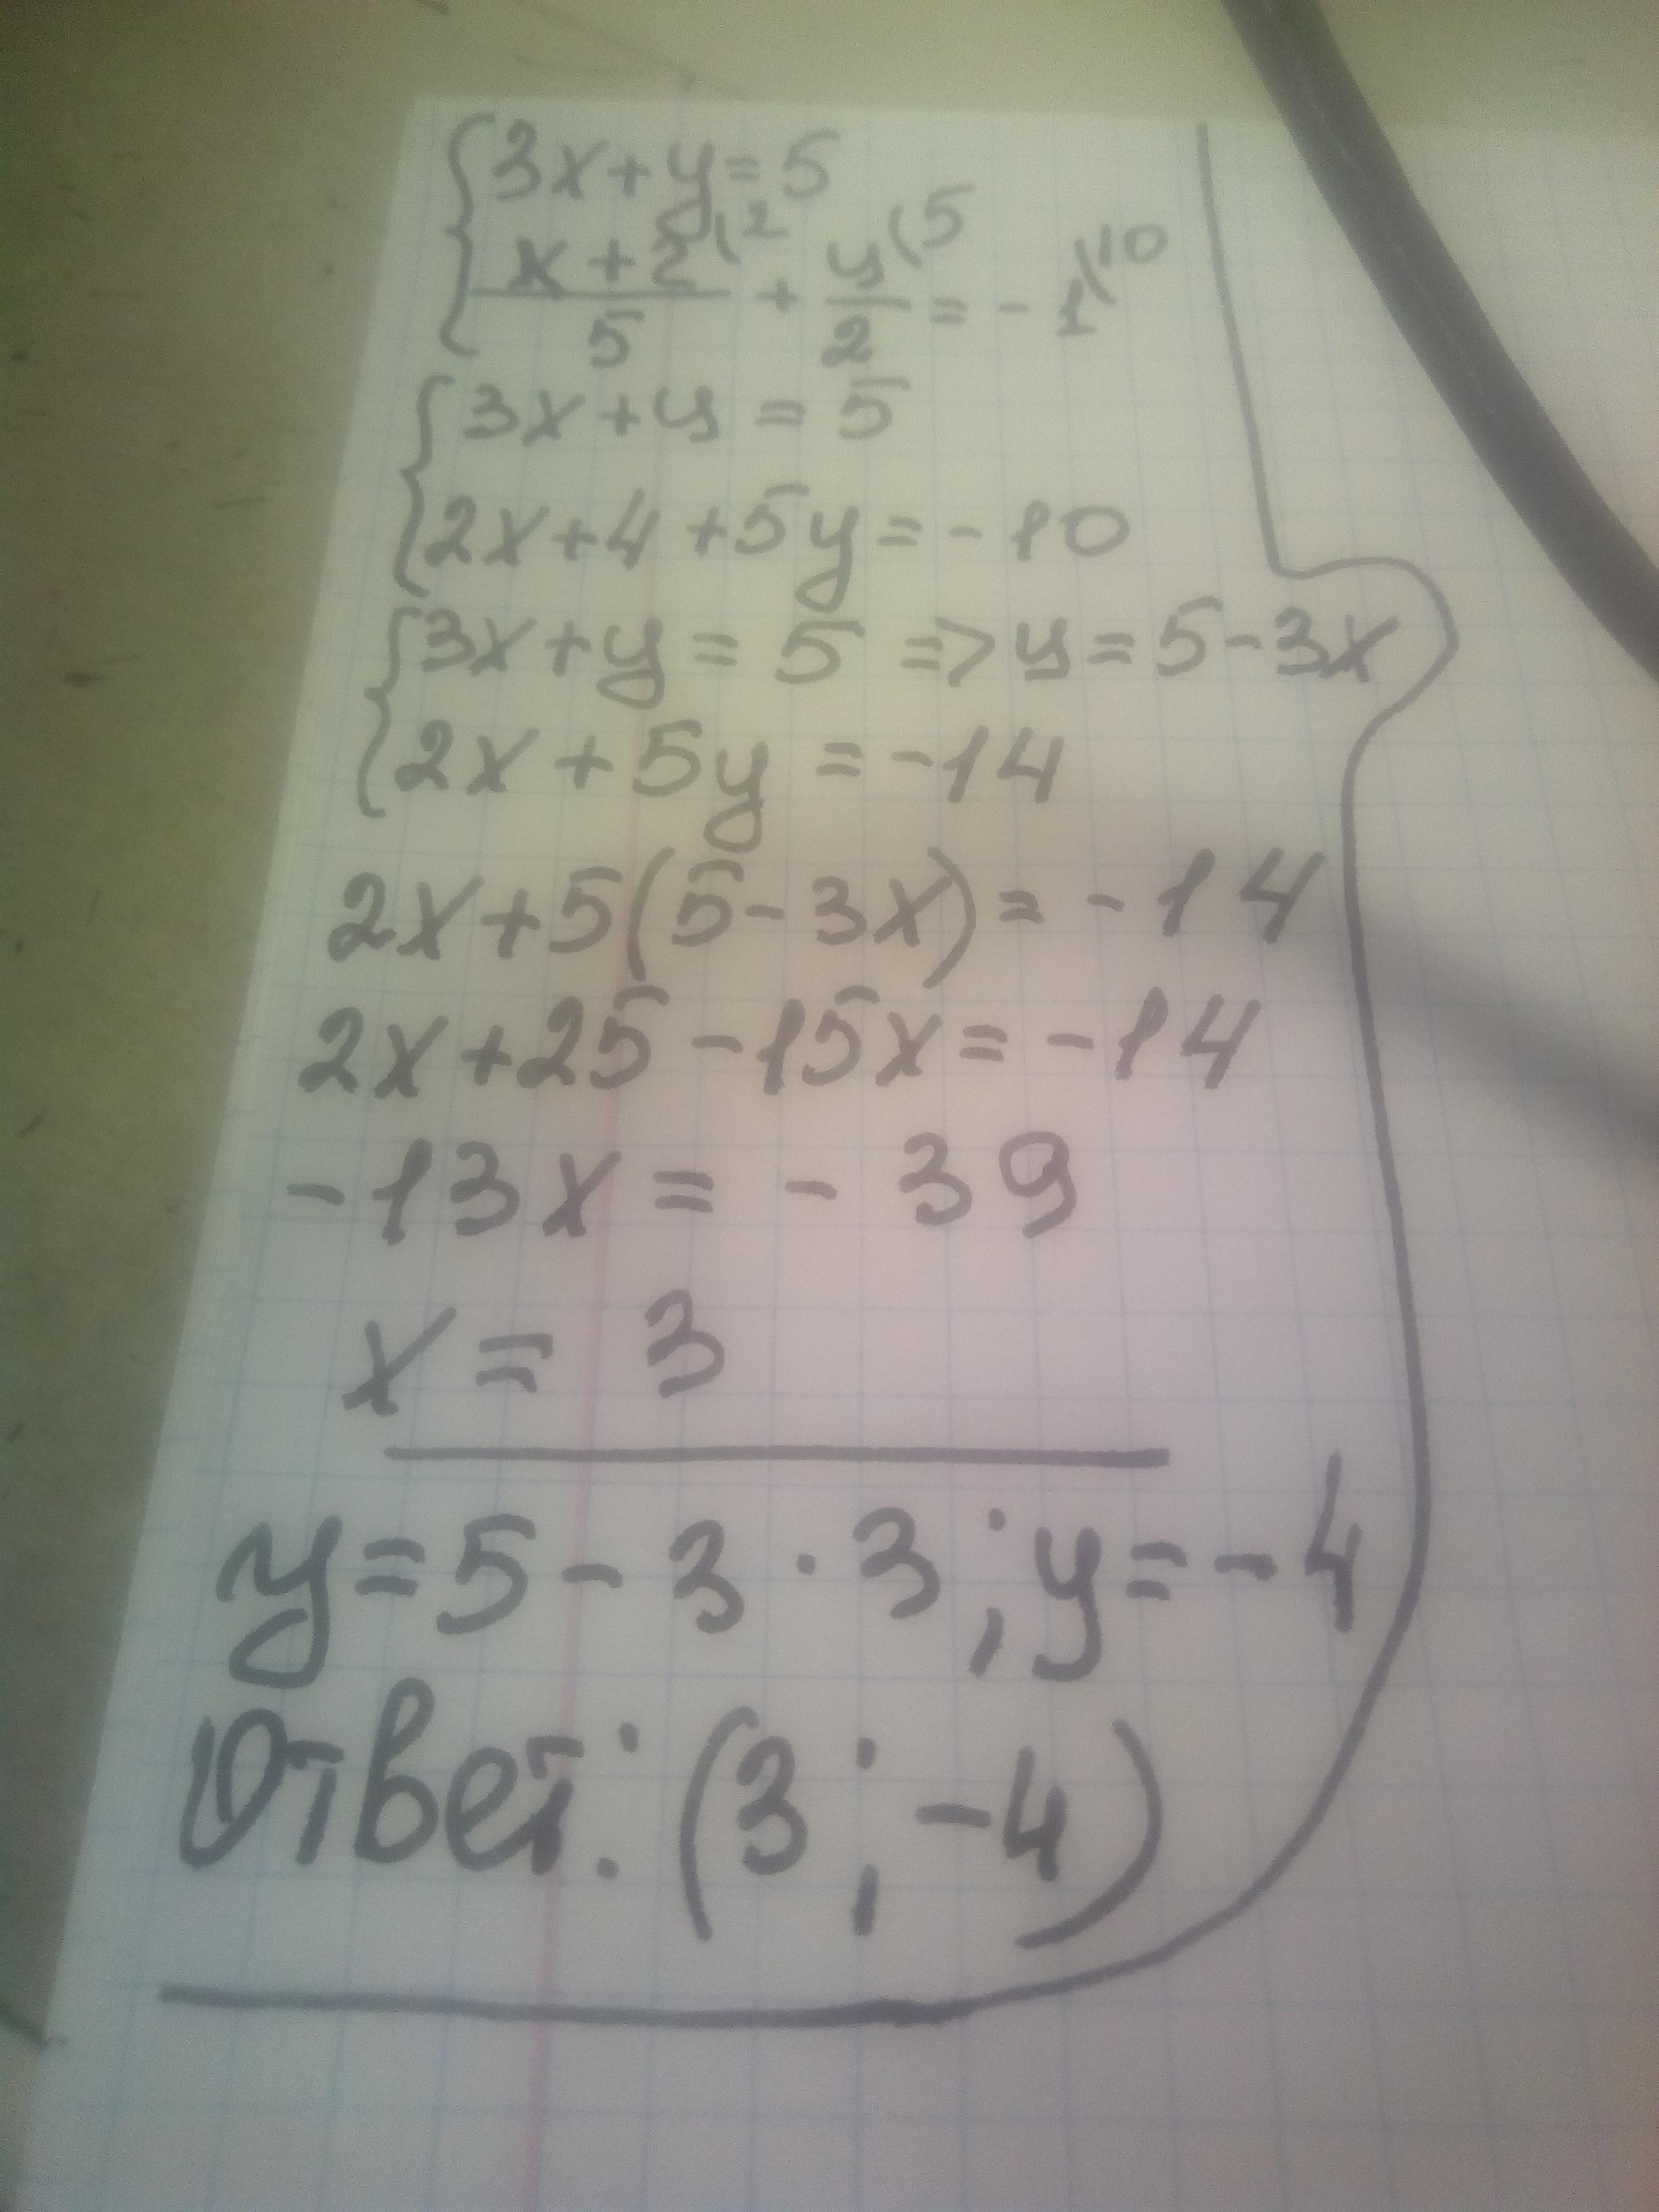 3x+y=5
x+2\2 / 5 + y\5 / 2 = -1\10
3x+y=5
2x+4+5y=-10
3x+y=5 => y=5-3x
2x+5y=-14
2x+5(5-3x)=-14
2x+25-15x=-14
-13x=-39
x=3
y=5-3·3; y=-4
Ответ: (3; -4)